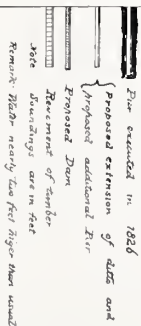 Pier executed in 1826
Proposed extension of ditto and
proposed additional Pier
Proposed Dam
Revetment of timber
Note
Soundings are in feet
Remark Water nearly two feet higer than usual